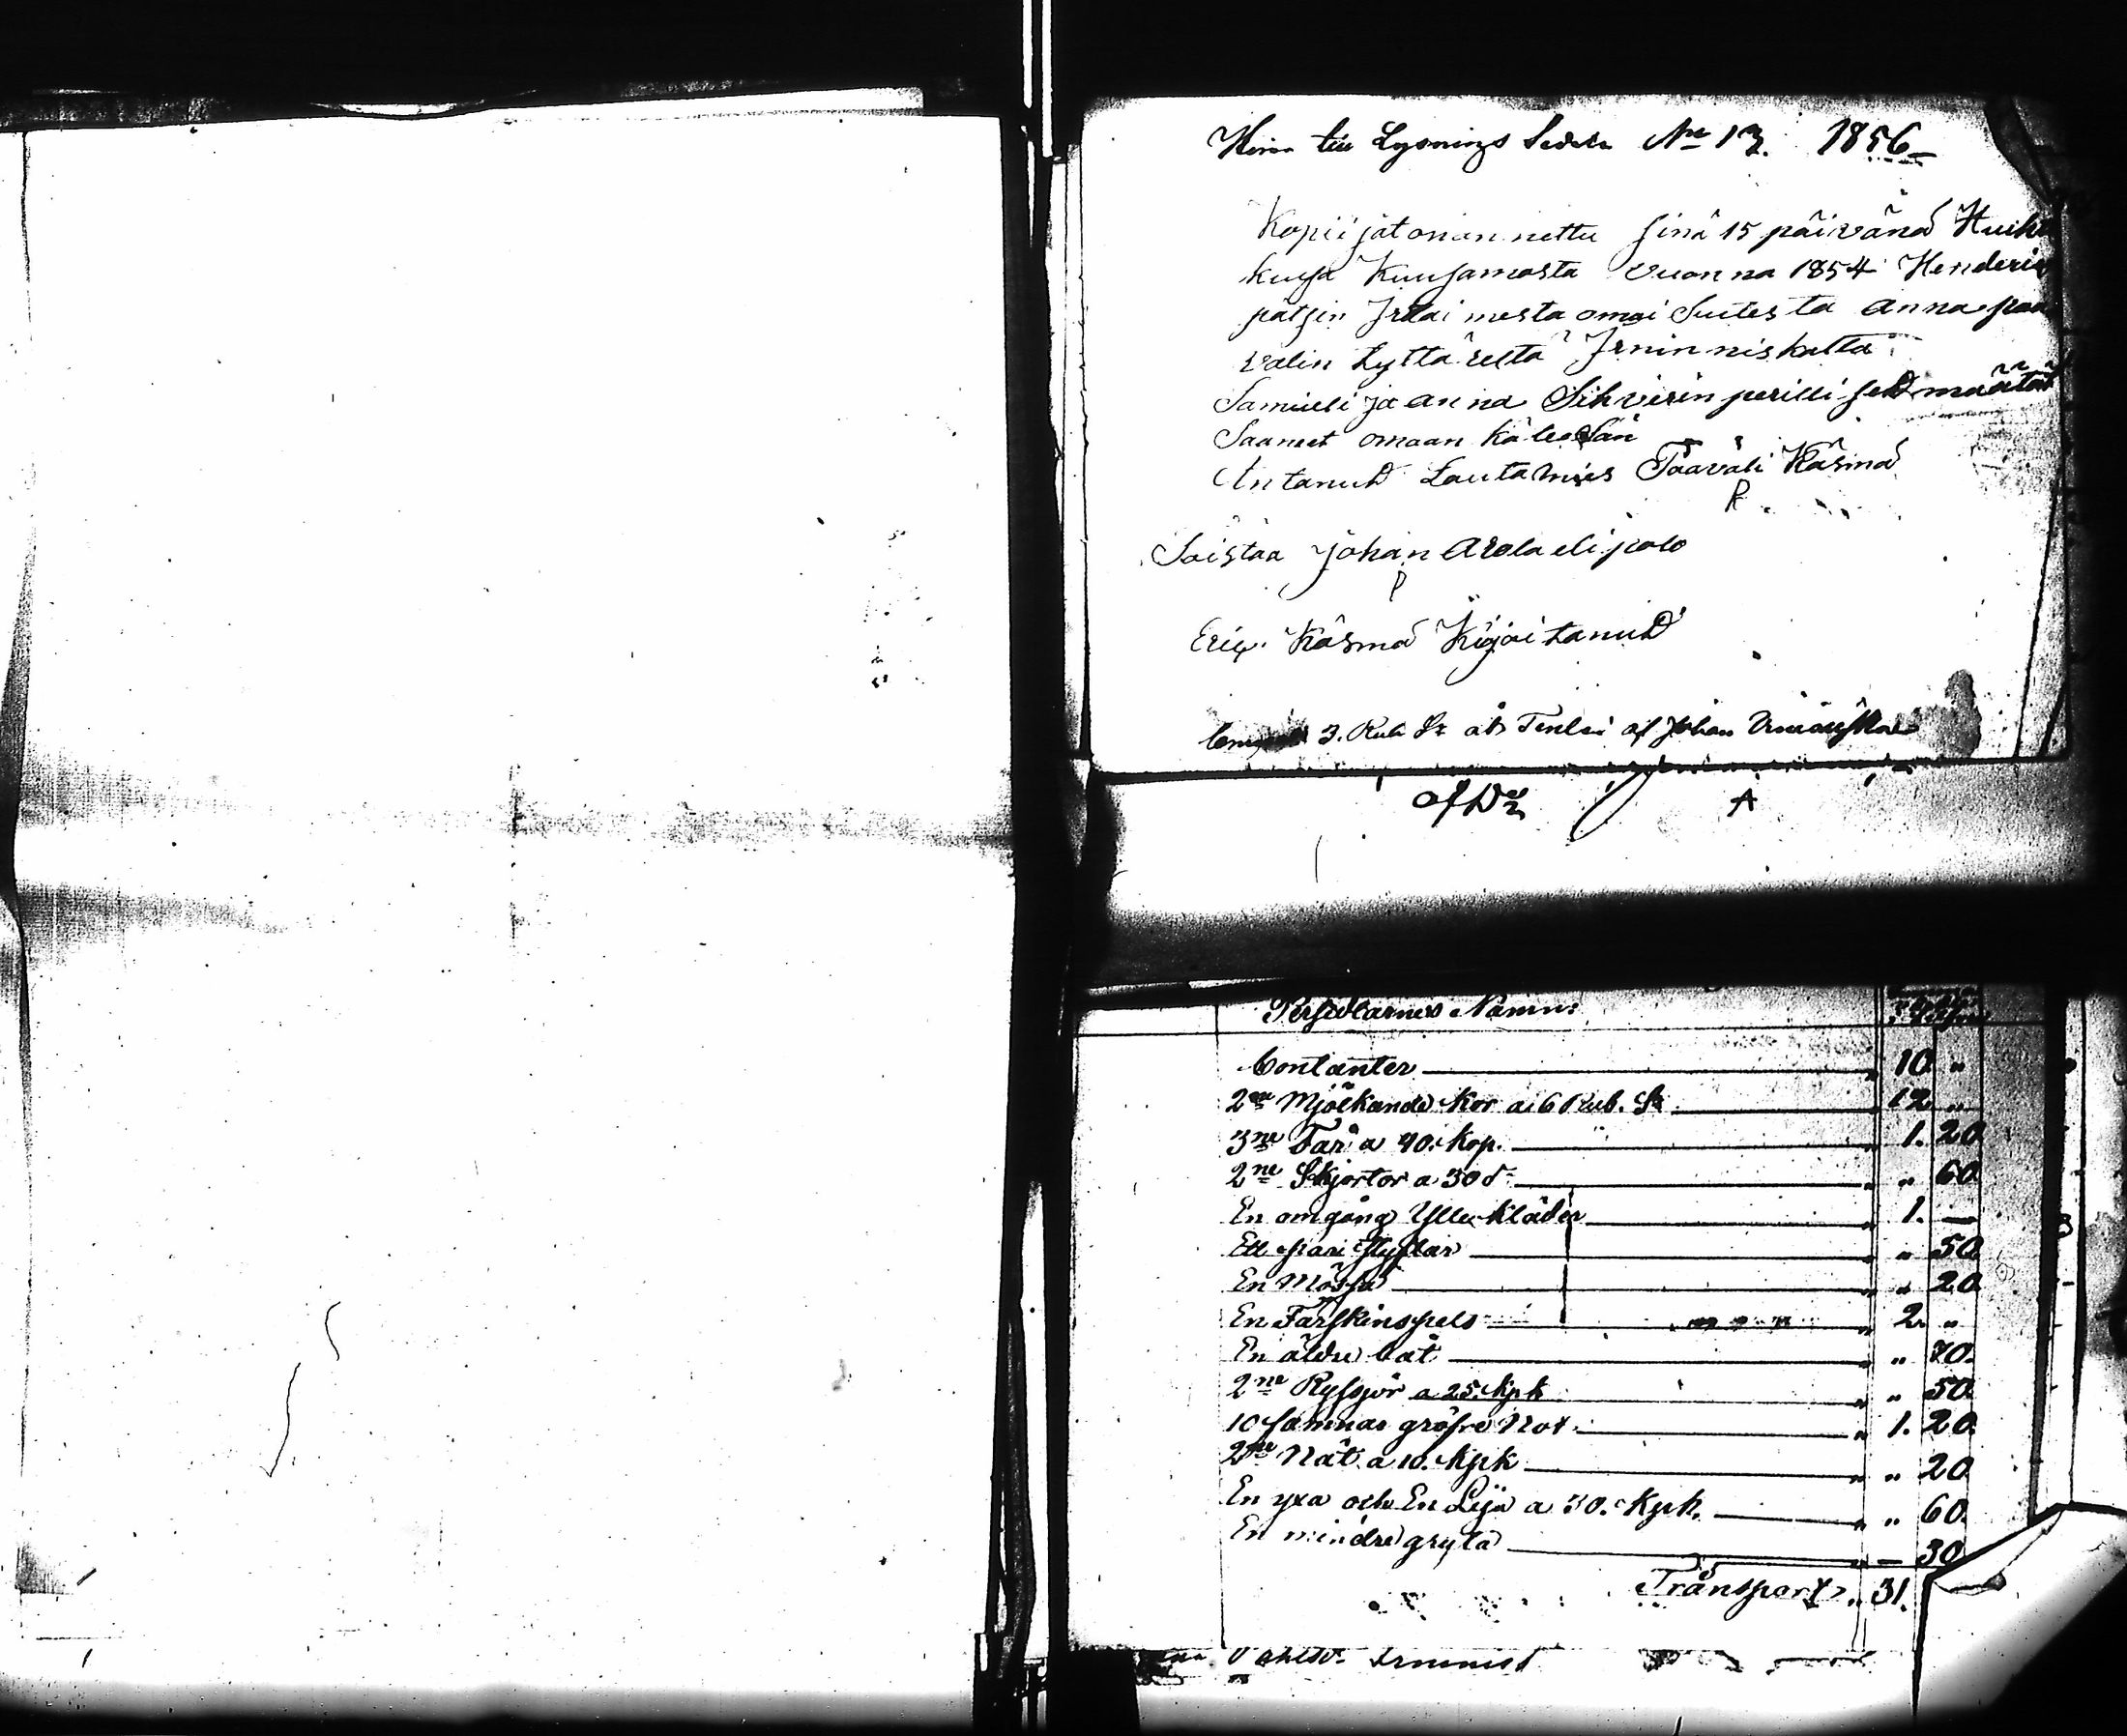 Lysnings Sedeln No 13. 1856
Kopii jätonannettu sinä 15 päivänä Huihti
kuusa Kuusamosta Vuonna 1854 Henderin
pätsin Irtai mesta omai Suutes ta anna paa
valin tyttäreltä Irnin niskalta
Samueli ja anna Sihverin perilli set määtät
Saaneet omaan käteesän
Antanud Lautamies Taaväli Käsmä
Joistaa Johan Arola eli polo
Eric Käsmä Kirjoi tanud
3. Rub Sr af Johan
A
Persedlarnes Namn:
Contanter 10 "
2ne Mjölkande Kor a 6 Rub. Sr 12 "
3ne Får a 40. Kop. 1. 20
2ne Skjortor a 30 d " 60
En omgång Ylle kläder 1. —
Ett par Styflar " 50
En Mössa " 20
En Fårskinspels 2. "
En äldre båt " 70.
2ne Ryssjor a 25. Kpk " 50.
10 famnar gröfre Not 1. 20.
2ne Nät a 10. Kpk " 20
En yxa och En Lija a 30. Kpk. " 60.
En mindre gryta — 30
Transport 31.